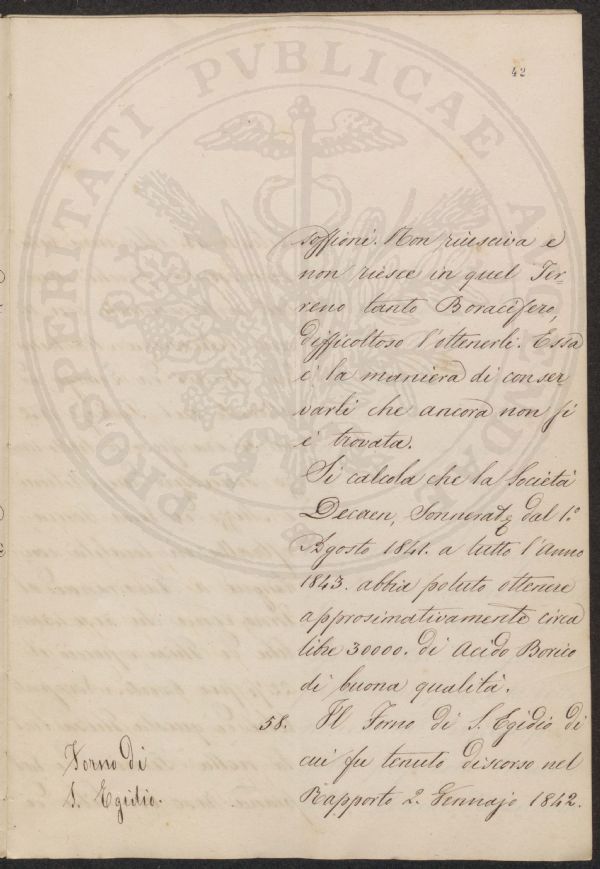 42
PROSPERITATI PVBLICAE AVGENDAE
soffioni. Non riusciva e
non riesce in quel Ter=
reno tanto Boracifero,
difficoltoso l'ottenerli. Essa
è la maniera di conser=
varli che ancora non si
è trovata.
Si calcola che la Società
Decaen, Sonnerat dal 1.º
Agosto 1841. a tutto l'Anno
1843. abbia potuto ottenere
approsimativamente circa
libe 30000. di Acido Borico
di buona qualità.
58. Il Forno di S. Egidio di
cui fu tenuto discorso nel
Rapporto 2. Gennajo 1842.
Forno di
S. Egidio.